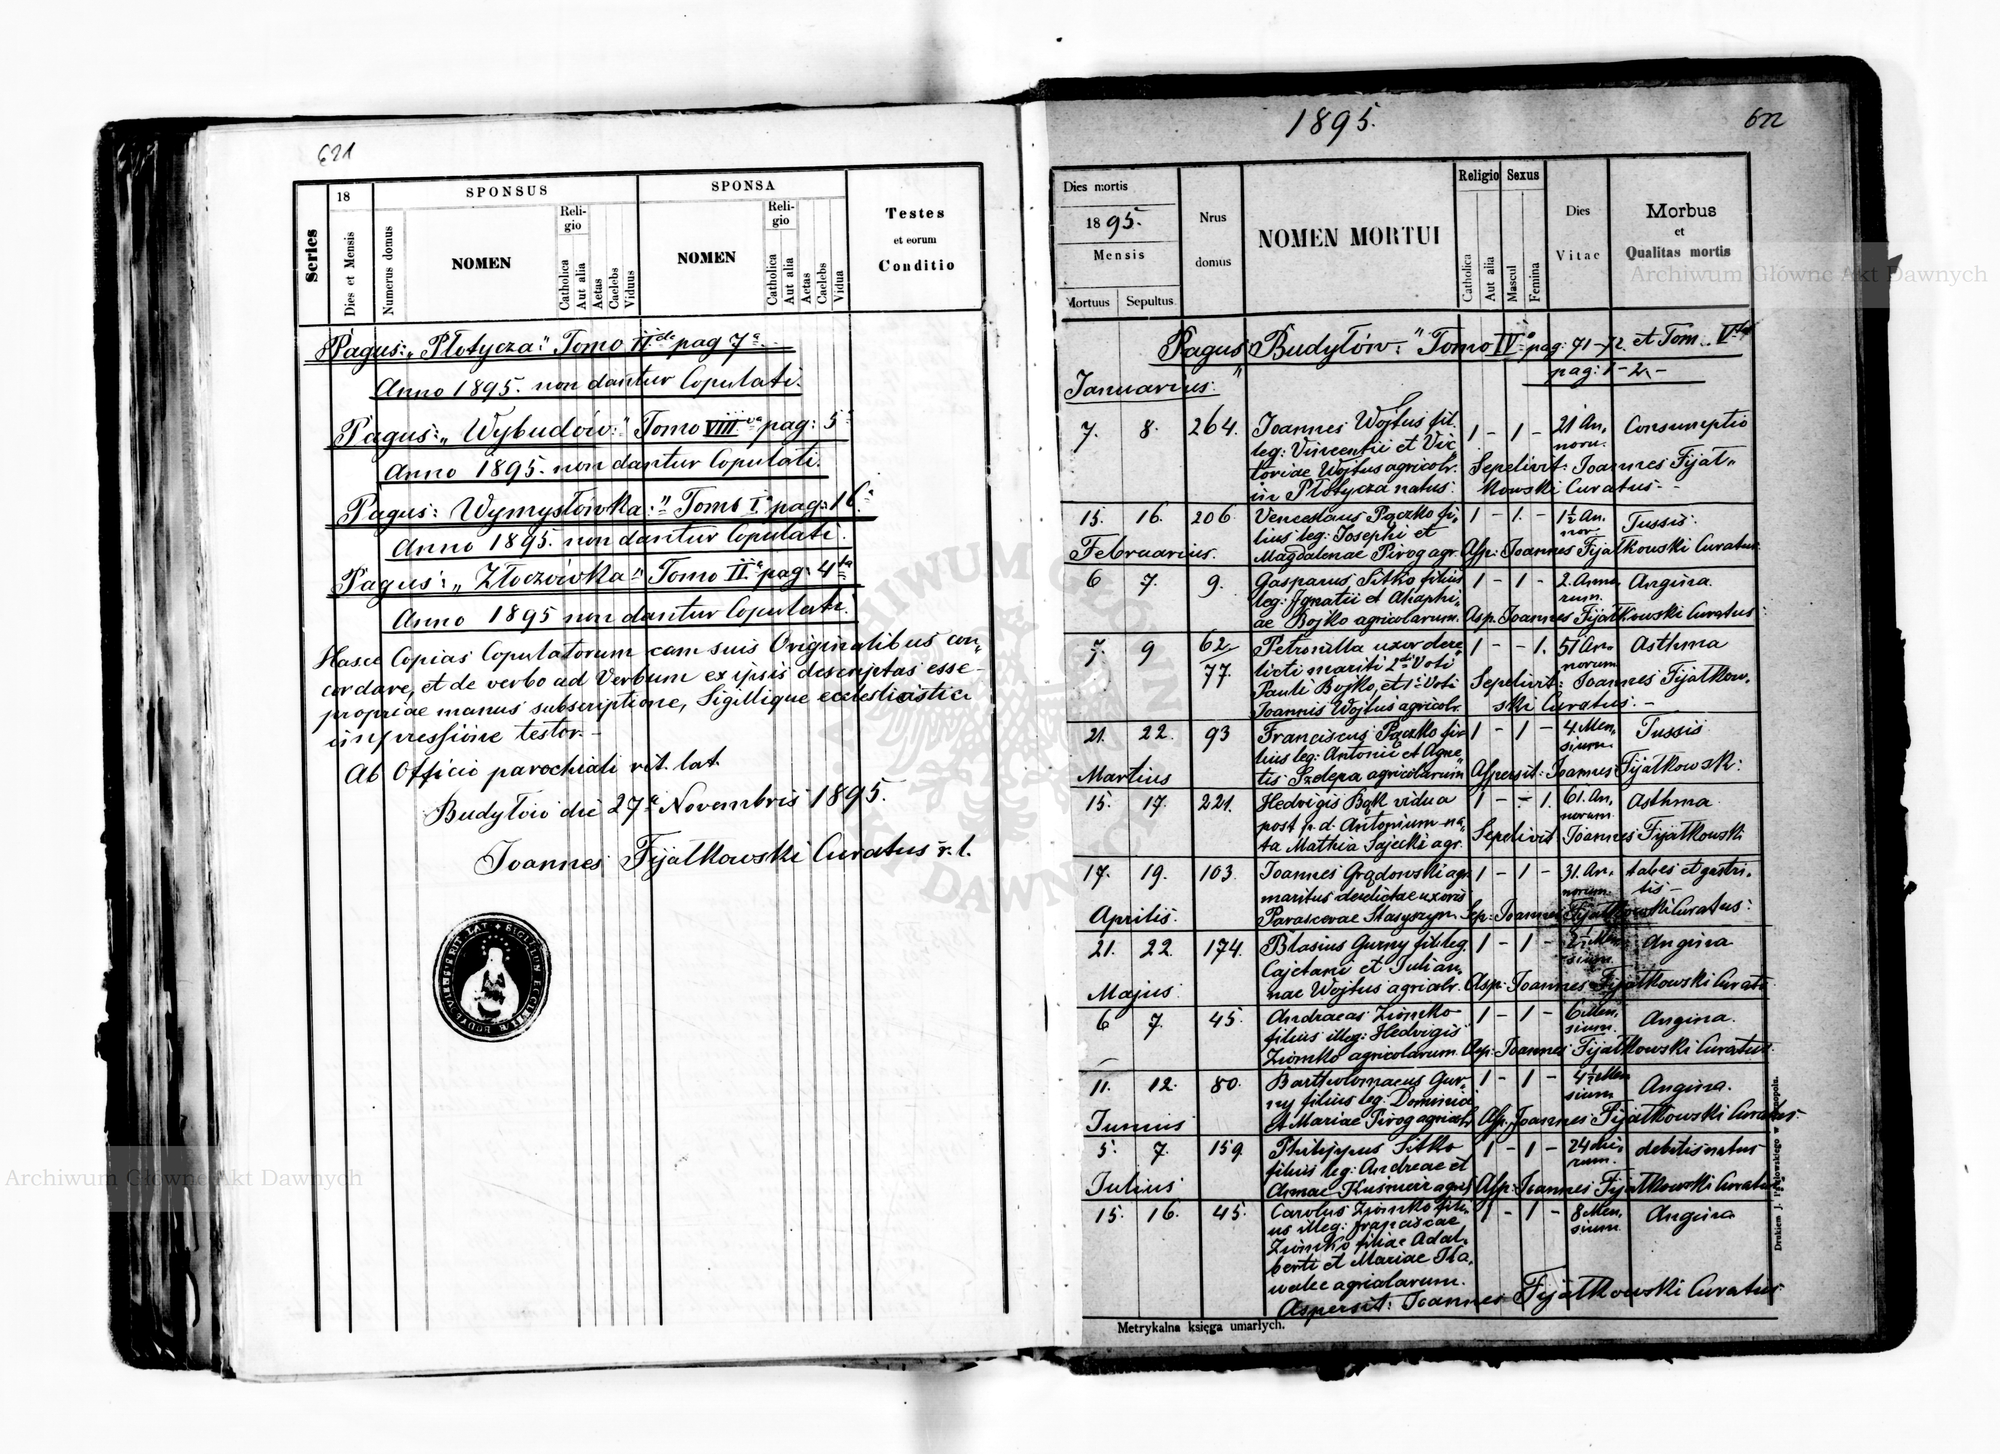 621
Series
18
Dies et Mensis
Numerus domus
SPONSUS
NOMEN
Religio
Catholica
Aut alia
Aetas
Caelebs
Viduus
SPONSA
NOMEN
Religio
Catholica
Aut alia
Aetas
Caelebs
Vidua
Testes
et eorum
Conditio
Pagus: „Płotycza:" Tomo II do pag 7a
Anno 1895. non dantur Copulati.
Pagus: „Wybudów:" Tomo VIII va pag: 5
Anno 1895. non dantur Copulati.
Pagus: Wymysłówka:" Tomo I. pag: 16.
Anno 1895. non dantur Copulati.
Pagus: „Złoczówka" Tomo II. pag: 4ta
Anno 1895 non dantur Copulati.
Hasce Copias Copulatorum cum suis Originalibus con„
cordare, et de verbo ad Verbum ex ipsis descriptas esse
propriae manus subscriptione, Sigillique ecclesiastici
impressione testor.
Ab Officio parochiali rit. lat.
Budyłów die 27a Novembris 1895.
Joannes Fijałkowski Curatus r. l.
1895.
622
Dies mortis
1895.
Mensis
Mortuus
Sepultus
Nrus
domus
NOMEN MORTUI
Religio
Catholica
Aut alia
Sexus
Mascul
Femina
Dies
Vitae
Morbus
et
Qualitas mortis
Pagus Budyłów:" Tomo IVo pag: 71-72. et Tom. Vto
pag: 1-2.-
Januarius:
7. 8. 264. Joannes Wojtus fil. 1 - 1 - 21 An, Consumptio
leg: Vincentii et Vic noru.
toriae Wojtus agricolr. Sepelivit: Joannes Fijał„
in Płotycza natus. kowski Curatus.-
15. 16. 206. Venceslaus Pączko fi, 1 - 1. - 1½ An, Tussis.
lius leg: Josephi et nor.
Februarius. Magdalenae Pirog agr. Asp: Joannes Fijałkowski Curatus
6 7. 9. Gasparus Sitko filius 1 - 1 - 2. Anno Angina.
leg: Ignatii et Ahaphi, rum.
ae Bojko agricolarum. Asp. Joannes Fijałkowski Curatus.
7 9 62/77. Petronilla uxor dere 1 - - 1. 51 An, Asthma
licti mariti 2di Voti norum
Pauli Bojko, et 1i Voti Sepelivit: Joannes Fijałkow,
Joannis Wojtus agricolr. ski Curatus.-
21. 22. 93 Franciscus Pączko fi 1 - 1 - 4. Men, Tussis
lius leg: Antonii et Agne sium
Martius tis Szdepa agricolarum Aspersit: Joannes Fijałkowski:
15. 17. 221. Hedvigis Bąk vidua 1 - - 1. 61. An, Asthma
post p. d. Antonium na„ norum.
ta Mathia Sajecki agr. Sepelivit Joannes Fijałkowski
17. 19. 103. Joannes Grądowski agr. 1 - 1 - 31. An, tabes et gastri,
maritus derelictae uxoris norum tis-
Aprilis. Parascevae Stasyszyn Sep: Joannes Fijałkowski Curatus:
21. 22. 174. Blasius Gurny fil: leg. 1 - 1 - 2½ Men Angina
Cajetani et Julian, sium.
Majus. nae Wojtus agricolr. Asp: Joannes Fijałkowski Curat
6 7. 45. Andraeas Ziomko 1 - 1 - 6 Men, Angina.
filius illeg: Hedvigis sium.
Ziomko agricolarum. Asp: Joannes Fijałkowski Curatus.
11. 12. 80. Bartholomaeus Gur, 1 - 1 - 4½ Men Angina.
ny filius leg: Dominici sium
Junius et Mariae Pirog agricolr. Asp. Joannes Fijałkowski Curatus.
5. 7. 159. Philippus Sitko 1 - 1 - 24 die debilis natus
filius leg: Andreae et rum.
Julius Annae Kuśnierz agrcl. Asp: Joannes Fijałkowski Curatus
15. 16. 45. Carolus Ziomko fili 1 - 1 - 8 Men, Angina
us illeg: Franciscae sium.
Ziomko filiae Adal,
berti et Mariae
agricolarum.
Aspersit: Joannes Fijałkowski Curatus
Metrykalna księga umarłych.
Archiwum Główne Akt Dawnych
Archiwum Główne Akt Dawnych
ARCHIWUM GŁÓWNE AKT DAWNYCH